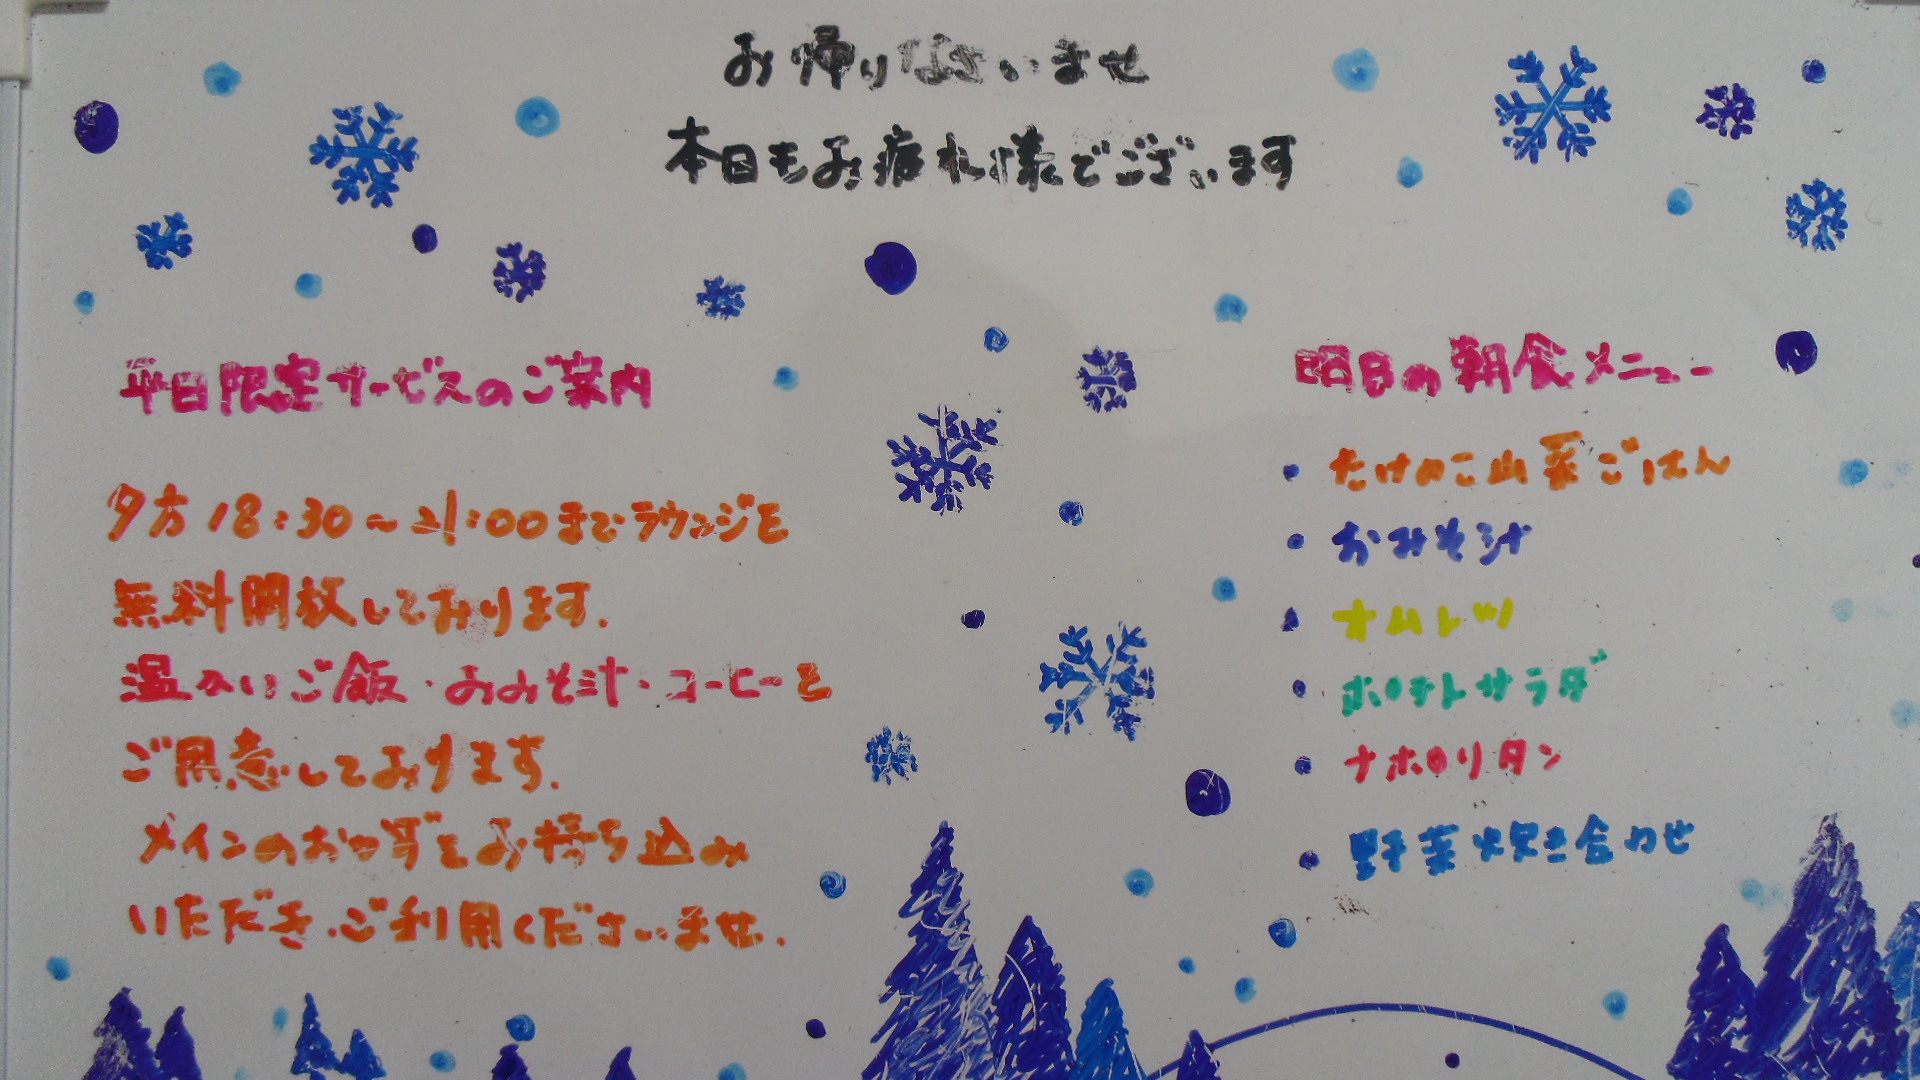 お帰りなさいませ
本日もお疲れ様でございます
平日限定サービスのご案内
夕方18:30~21:00までラウンジを
無料開放しております.
温かいご飯・おみそ汁・コーヒーを
ご用意しております.
メインのおかずをお持ち込み
いただき.ご利用くださいませ.
明日の朝食メニュー
・たけのこ山菜ごはん
・おみそ汁
・オムレツ
・ポテトサラダ
・ナポリタン
・野菜炊き合わせ